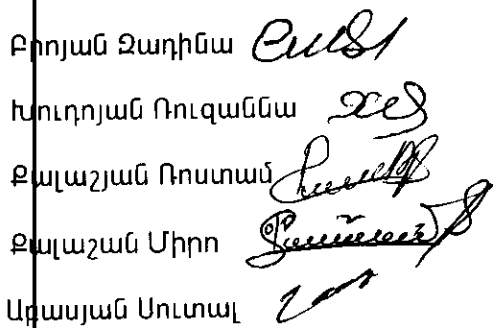 Բրոյան Զադինա
Խուդոյան Ռուզաննա
Քալաշյան Ռոստամ
Քալաշան Միրո
Աբասյան Սուտալ